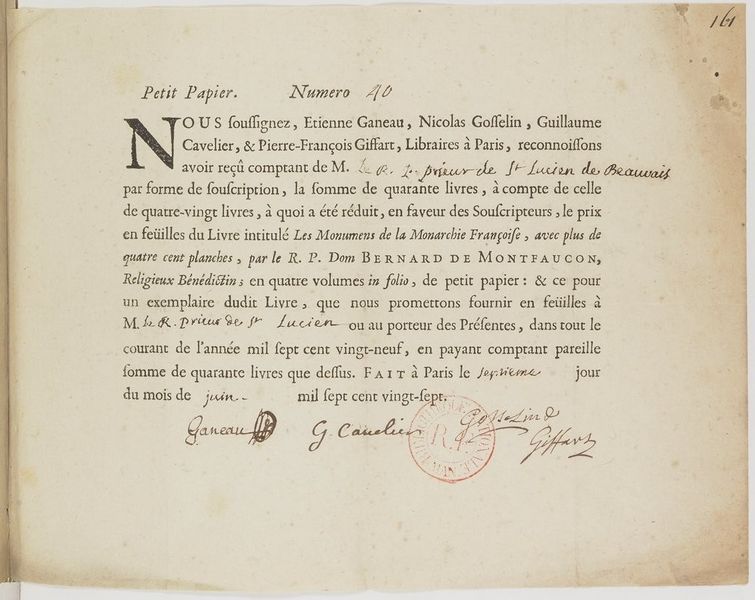 161
Petit Papier. Numero 40
NOUS ſouſſignez, Etienne Ganeau, Nicolas Goſſelin, Guillaume
Cavelier, & Pierre-François Giffart, Libraires à Paris, reconnoiſſons
avoir reçû comptant de M. le R. p. prieur de St Lucien de Beauvais
par forme de ſouſcription, la ſomme de quarante livres, à compte de celle
de quatre-vingt livres, à quoi a été réduit, en faveur des Souſcripteurs, le prix
en feüilles du Livre intitulé Les Monumens de la Monarchie Françoiſe, avec plus de
quatre cent planches, par le R. P. Dom BERNARD DE MONTFAUCON,
Religieux Bénédictin; en quatre volumes in folio, de petit papier: & ce pour
un exemplaire dudit Livre, que nous promettons fournir en feüilles à
M. le R. prieur de St Lucien ou au porteur des Préſentes, dans tout le
courant de l'année mil ſept cent vingt-neuf, en payant comptant pareille
ſomme de quarante livres que deſſus. FAIT à Paris le septieme jour
du mois de juin mil ſept cent vingt-ſept.
Ganeau G. Cavelier Gosselin Giffart